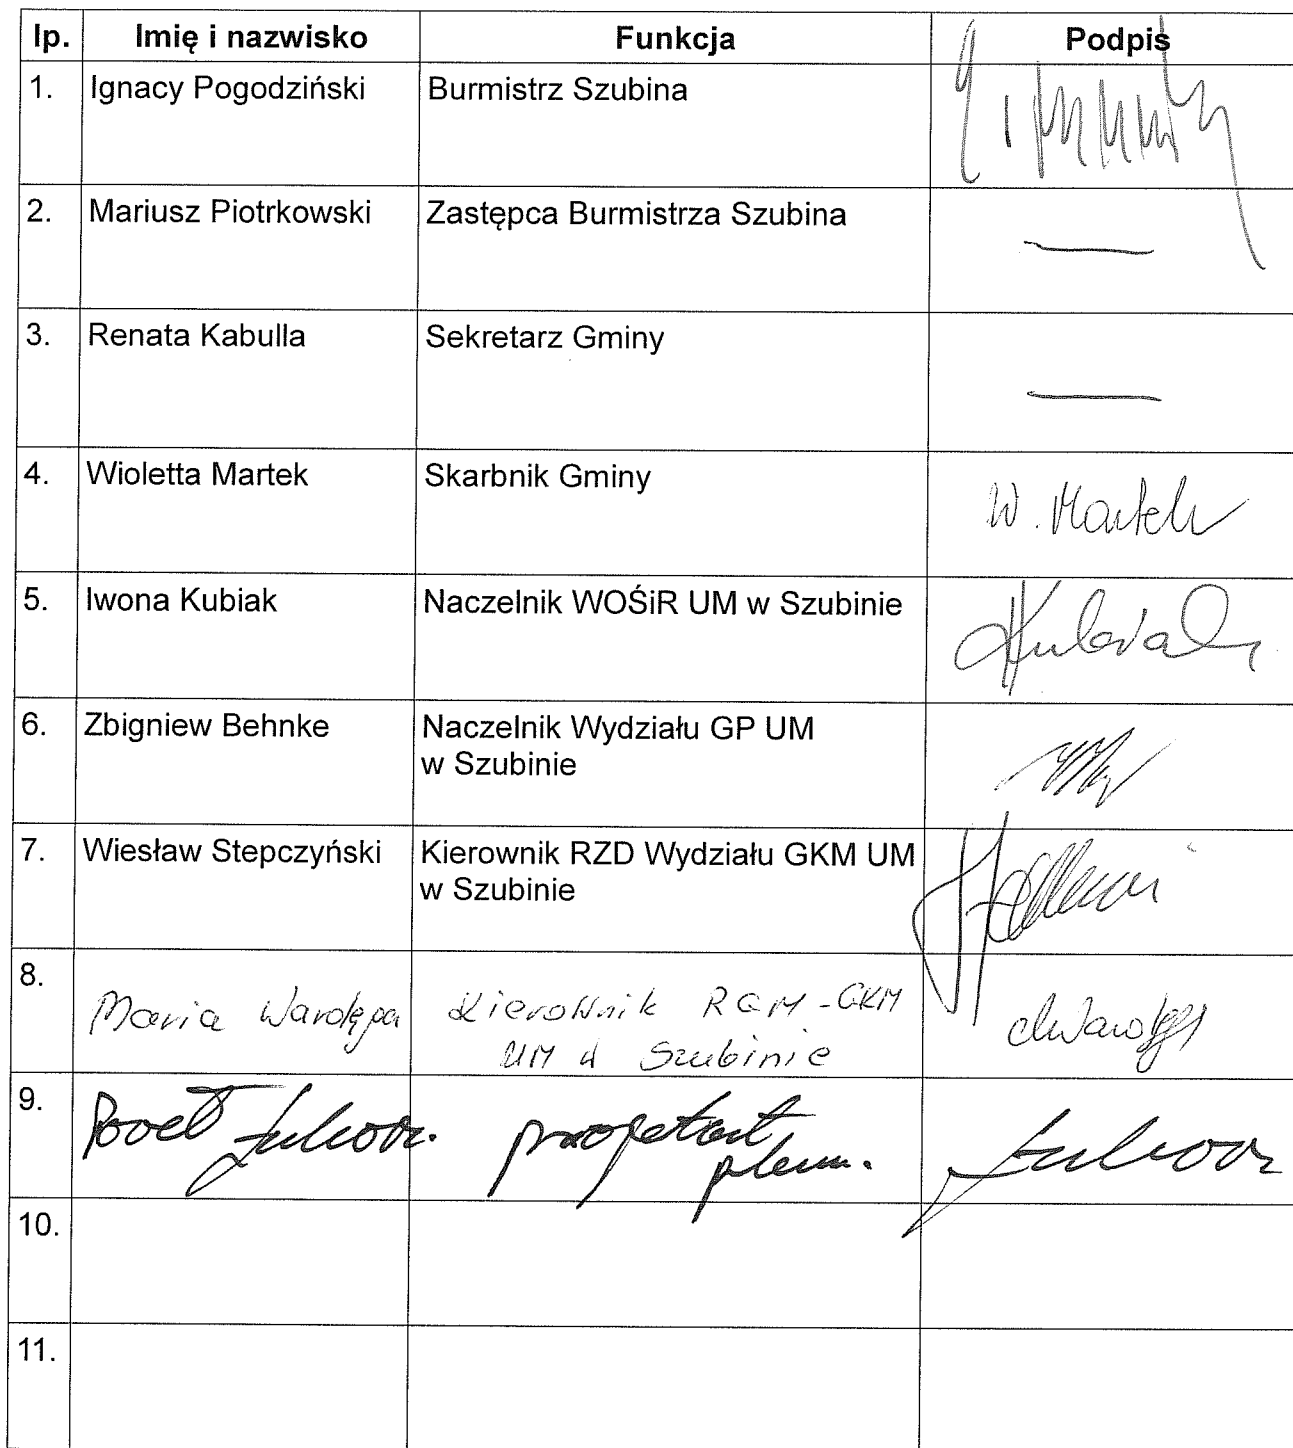 lp. Imię i nazwisko Funkcja Podpis
1. Ignacy Pogodziński Burmistrz Szubina
2. Mariusz Piotrkowski Zastępca Burmistrza Szubina
3. Renata Kabulla Sekretarz Gminy
4. Wioletta Martek Skarbnik Gminy W. Martek
5. Iwona Kubiak Naczelnik WOŚiR UM w Szubinie Kubiak
6. Zbigniew Behnke Naczelnik Wydziału GP UM
w Szubinie
7. Wiesław Stepczyński Kierownik RZD Wydziału GKM UM
w Szubinie
8. Maria Wardęga Kierownik RGM-GKM
UM w Szubinie
9. Paweł projektant
10.
11.